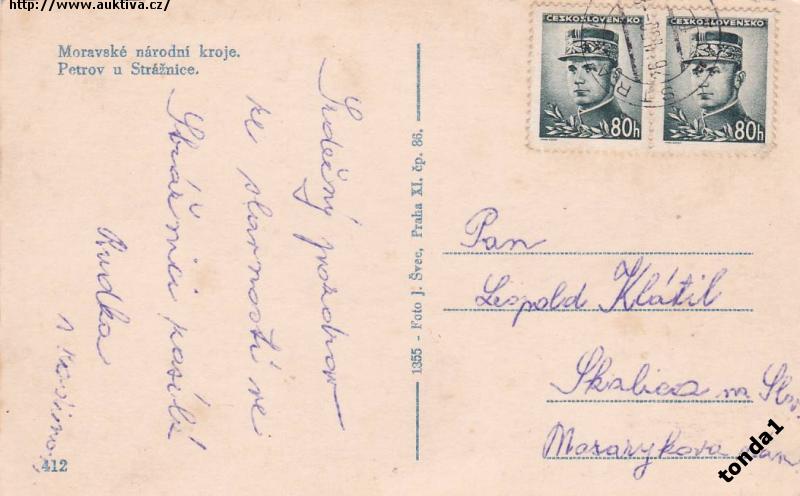 http://www.auktiva.cz/
Moravské národní kroje.
Petrov u Strážnice.
Srdečný pozdrav
ze slavnosti ve
Strážnici posílá
Rudka
412
1355 - Foto J. Švec, Praha XI. čp. 86.
ČESKOSLOVENSKO
80h
ČESKOSLOVENSKO
80h
Pan
Leopold Klátil
Skalica na Slov
Masarykova
tonda1